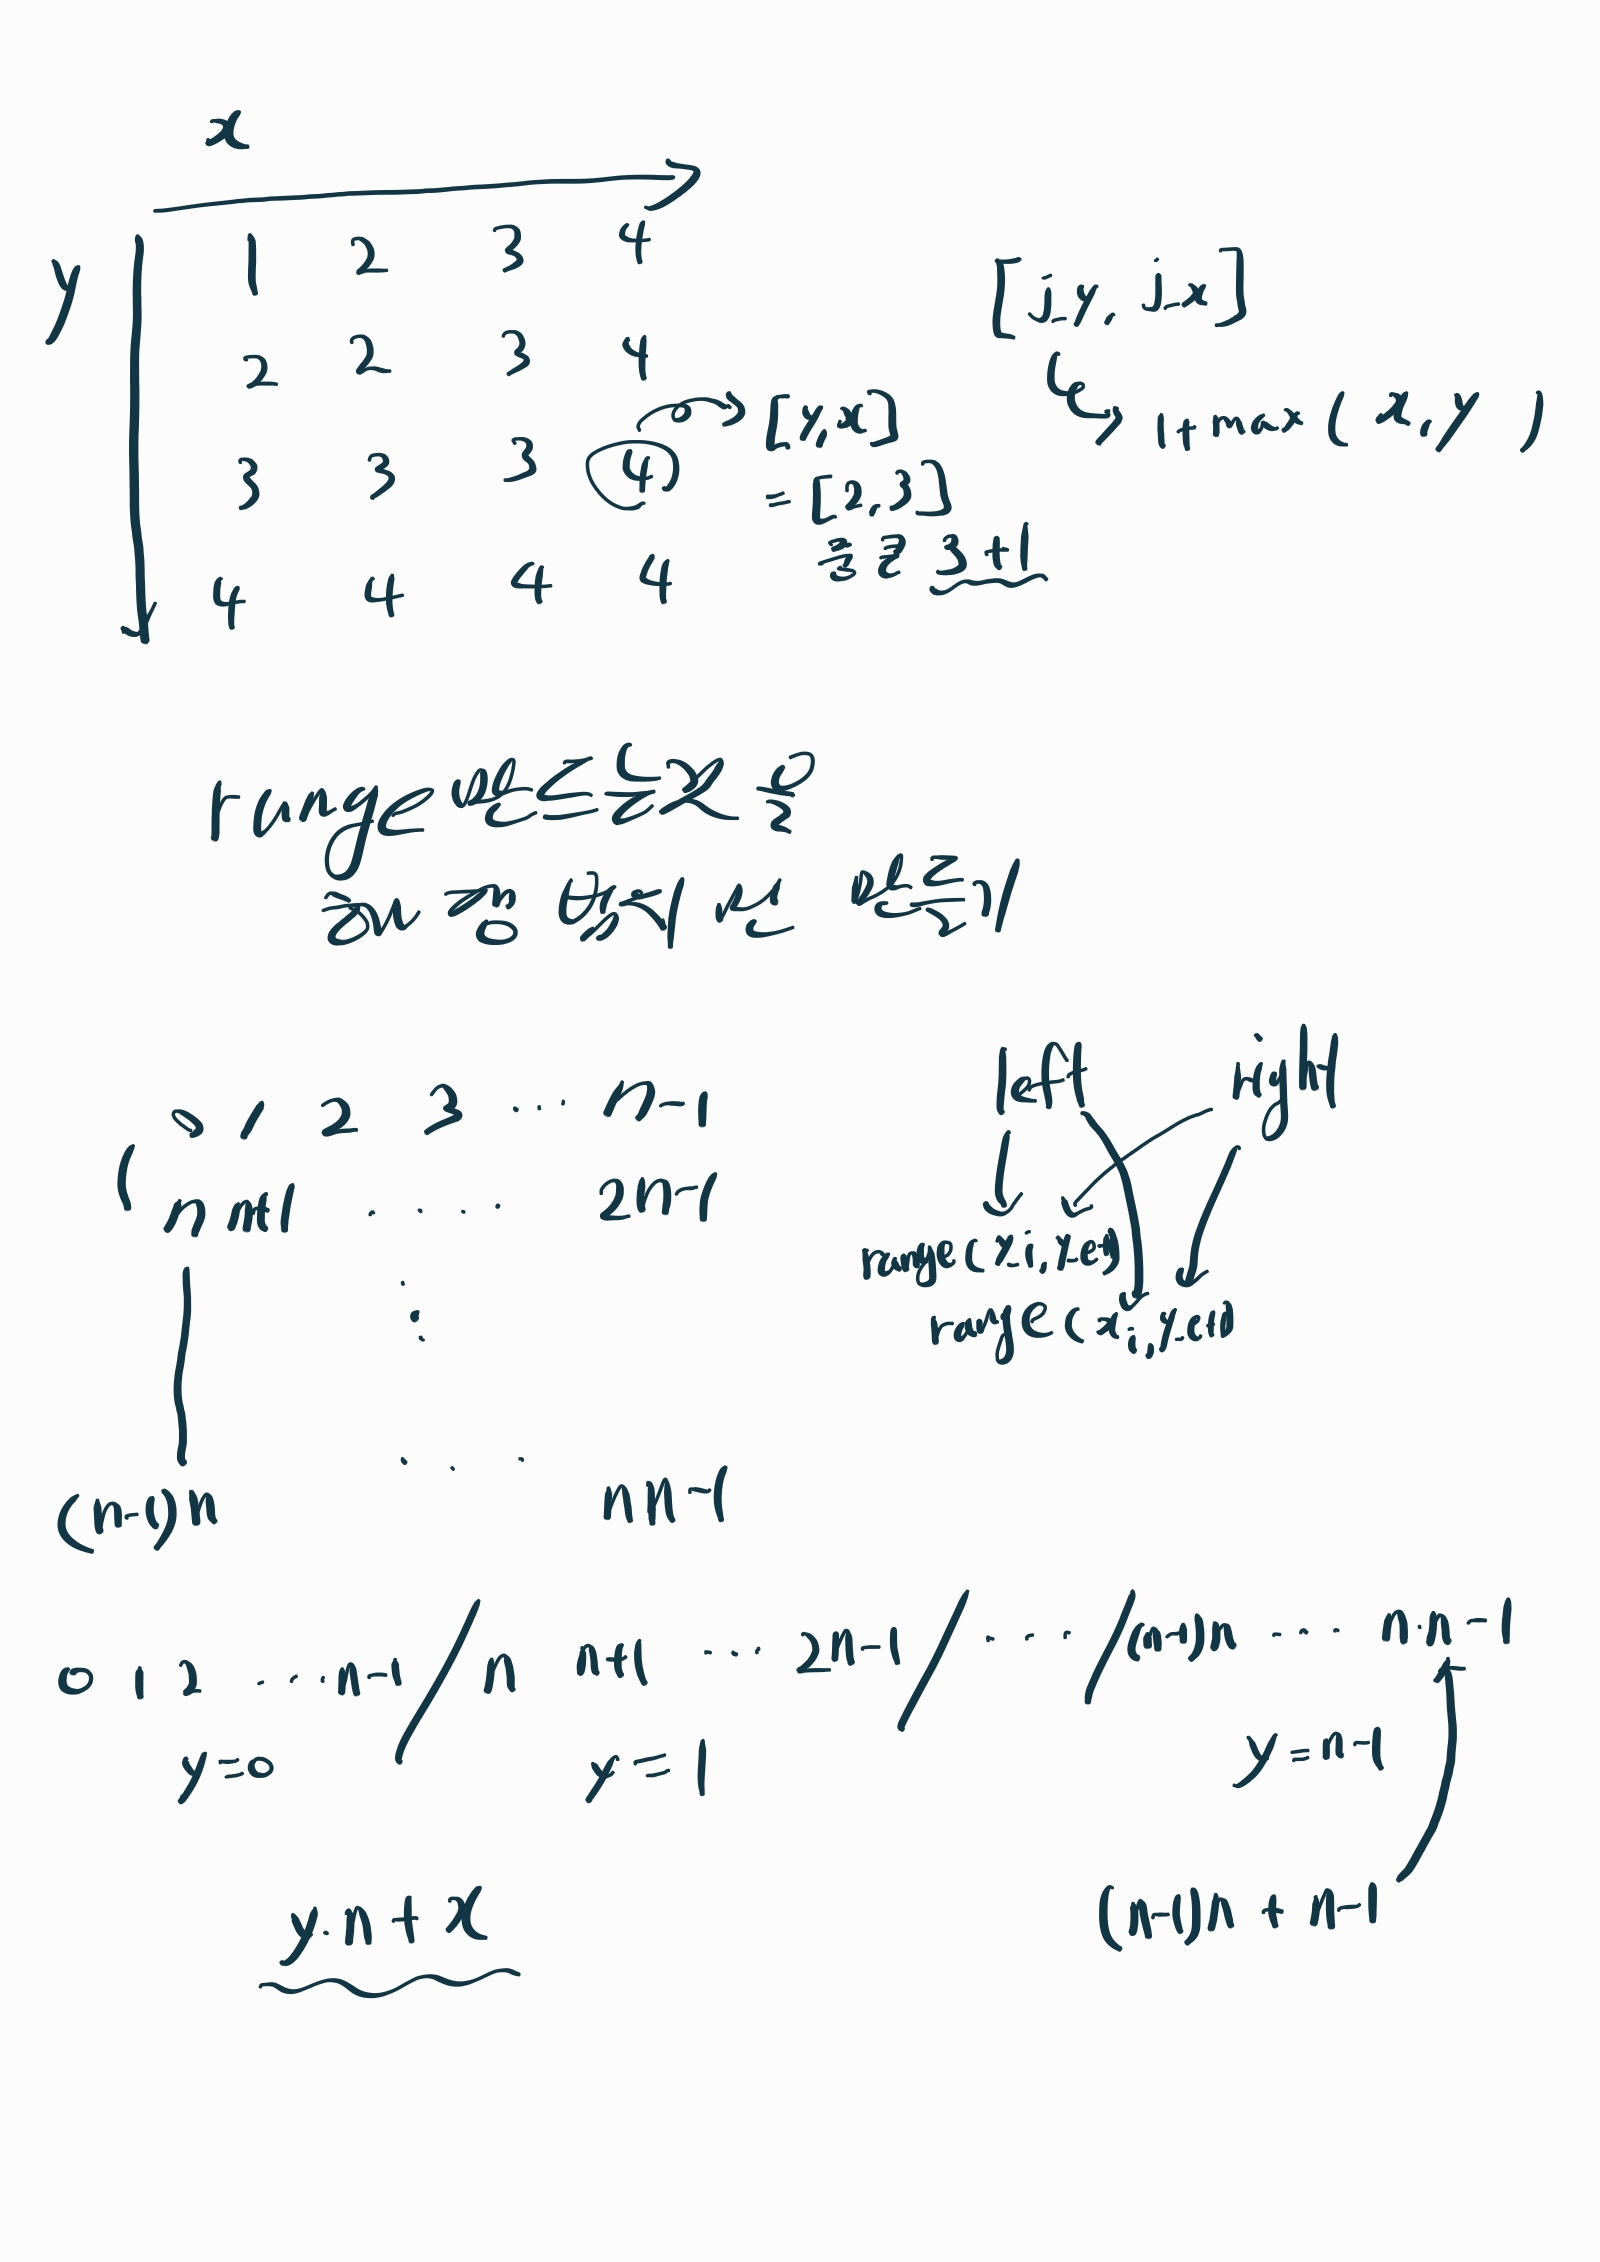 x
y
1 2 3 4
2 2 3 4
3 3 3 4
4 4 4 4
[y,x]
= [2,3]
3+1
[j_y, j_x]
1+max(x,y)
range
0 1 2 3 ... n-1
n n+1 .... 2n-1
(n-1)n ... nn-1
left right
range(y_i, y_e+1)
range(x_i, y_e+1)
0 1 2 ... n-1 / n n+1 ... 2n-1 / ... / (n-1)n ... n·n-1
y=0 y=1 y=n-1
y·n+x
(n-1)n + n-1